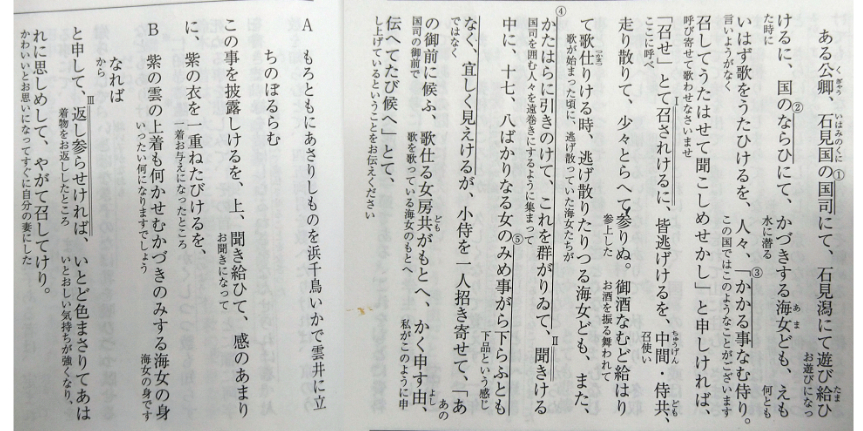 ある公卿、石見国の国司にて、石見潟にて遊び給ひ
くぎやう いはみのくに ① たま
お遊びになっ
けるに、国のならひにて、かづきする海女ども、えも
② あま
た時に 水に潜る 何とも
いはず歌をうたひけるを、人々、「かかる事なむ侍り。
③
言いようがなく この国ではこのようなことがございます
召してうたはせて聞こしめせかし」と申しければ、
呼び寄せて歌わせなさいませ
「召せ」とて召されけるに、皆逃げけるを、中間・侍共、
Ⅰ ちゆうげん ども
ここに呼べ 召使い
走り散りて、少々とらへて参りぬ。御酒なむど給はり
参上した お酒を振る舞われて
て歌仕りける時、逃げ散りたりつる海女ども、また、
歌が始まった頃に、逃げ散っていた海女たちが
かたはらに引きのけて、これを群がりゐて、聞きける
④ Ⅱ
国司を囲む人々を遠巻きにするように集まって
中に、十七、八ばかりなる女のみめ事がら下らふとも
⑤
下品という感じ
なく、宜しく見えけるが、小侍を一人招き寄せて、「あ
ではなく あの
の御前に候ふ、歌仕る女房共がもとへ、かく申す由、
ども よし
国司の御前で 歌を歌っている海女のもとへ 私がこのように申
伝へてたび候へ」とて、
し上げているということをお伝えください
A もろともにあさりしものを浜千鳥いかで雲井に立
ちのぼるらむ
この事を披露しけるを、上、聞き給ひて、感のあまり
お聞きになって
に、紫の衣を一重ねたびけるを、
一着お与えになったところ
B 紫の雲の上着も何かせむかづきのみする海女の身
いったい何になりますでしょう 海女の身です
なれば
から
と申して、返し参らせければ、いとど色まさりてあは
Ⅲ
着物をお返ししたところ いとおしい気持ちが強くなり、
れに思しめして、やがて召してけり。
かわいいとお思いになってすぐに自分の妻にした